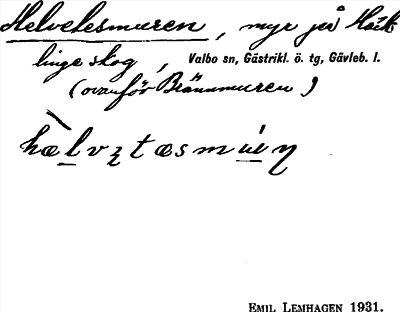 Helvetesmuren, myr på Häck
linge skog, Valbo sn, Gästrikl. ö. tg, Gävleb. l.
(ovanför Brännmuren)
EMIL LEMHAGEN 1931.